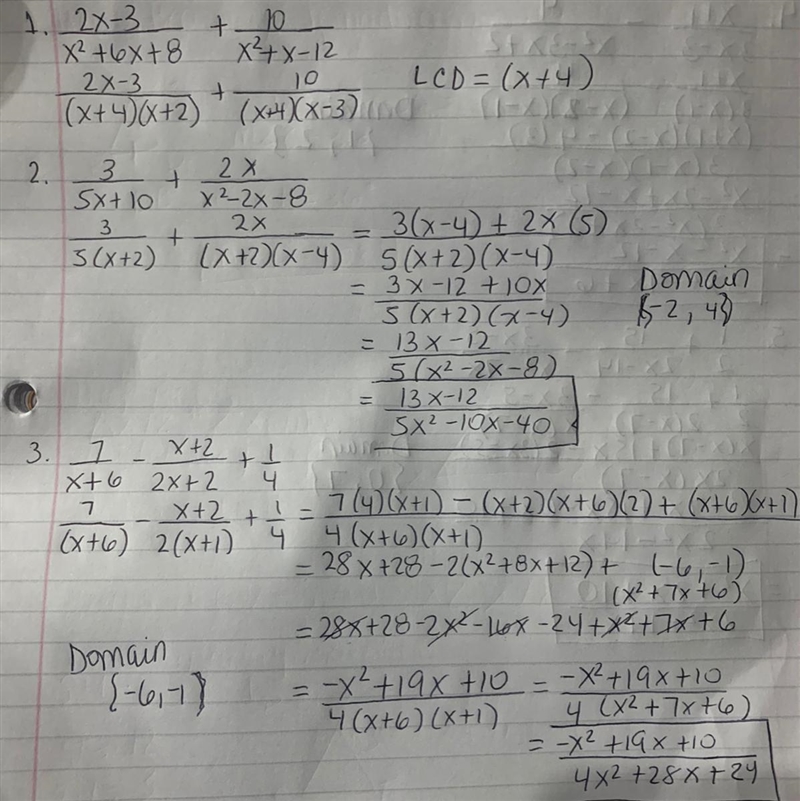 1. (2x-3)/(x²+6x+8) + 10/(x²+x-12)
(2x-3)/((x+4)(x+2)) + 10/((x+4)(x-3)) LCD = (x+4)
2. 3/(5x+10) + 2x/(x²-2x-8)
3/(5(x+2)) + 2x/((x+2)(x-4)) = (3(x-4) + 2x(5))/(5(x+2)(x-4))
= (3x-12+10x)/(5(x+2)(x-4)) Domain
{-2, 4}
= (13x-12)/(5(x²-2x-8))
= (13x-12)/(5x²-10x-40)
3. 7/(x+6) - (x+2)/(2x+2) + 1/4
7/(x+6) - (x+2)/(2(x+1)) + 1/4 = (7(4)(x+1) - (x+2)(x+6)(2) + (x+6)(x+1))/(4(x+6)(x+1))
= 28x+28-2(x²+8x+12)+ (-6,-1)
(x²+7x+6)
= 28x+28-2x²-16x-24+x²+7x+6
Domain
{-6,-1}
= (-x²+19x+10)/(4(x+6)(x+1)) = (-x²+19x+10)/(4(x²+7x+6))
= (-x²+19x+10)/(4x²+28x+24)